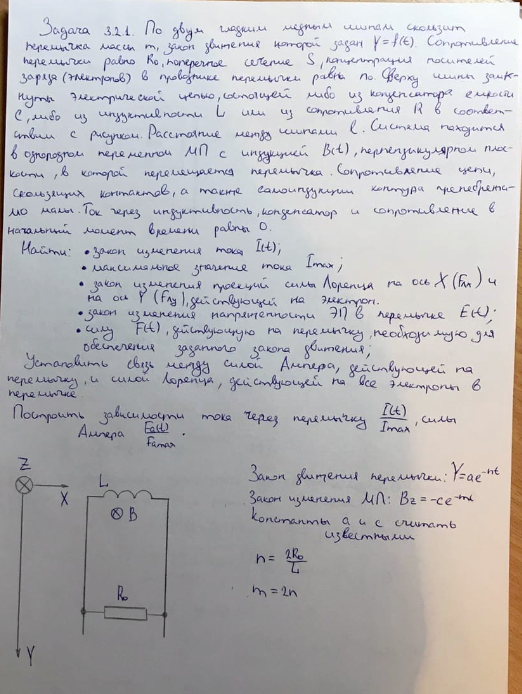 Задача 3.2.1. По двум гладким медным шинам скользит
перемычка массы m, закон движения которой задан Y=f(t). Сопротивление
перемычки равно R₀, поперечное сечение S, концентрация носителей
заряда (электронов) в проводнике перемычки равны n₀. Сверху шины замк-
нуты электрической цепью, состоящей либо из конденсатора емкости
C, либо из индуктивности L или из сопротивления R в соответ-
ствии с рисунком. Расстояние между шинами l. Система находится
в однородном переменном МП с индукцией B(t), перпендикулярном плос-
кости, в которой перемещается перемычка. Сопротивление цепи,
скользящих контактов, а также самоиндукции контура пренебрежи-
мо малы. Ток через индуктивность, конденсатор и сопротивление в
начальный момент времени равны 0.
Найти: • закон изменения тока I(t);
• максимальное значение тока Imax;
• закон изменения проекций силы Лоренца на ось X (Fлx) и
на ось Y (Fлy), действующей на электрон.
• закон изменения напряженности ЭП в перемычке E(t);
• силу F(t), действующую на перемычку, необходимую для
обеспечения заданного закона движения;
Установить связь между силой Ампера, действующей на
перемычку, и силой Лоренца, действующей на все электроны в
перемычке
Построить зависимости тока через перемычку I(t)/Imax, силы
Ампера Fa(t)/Famax.
Z
X
L
B
R₀
Y
Закон движения перемычки: Y=ae^-nt
Закон изменения МП: Bz=-ce^-mt
Константы a и c считать
известными
n = 2R₀/L
m = 2n